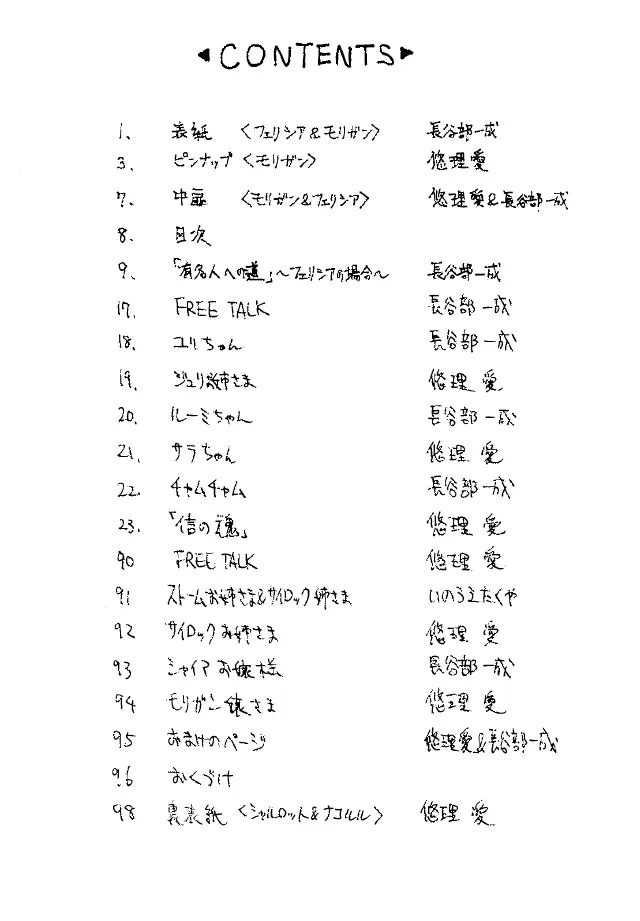 ◀CONTENTS▶
1、 表紙 〈フェリシア&モリガン〉 長谷部一成
3、 ピンナップ〈モリガン〉 悠理愛
7、 中扉 〈モリガン&フェリシア〉 悠理愛&長谷部一成
8、 目次
9、 「有名人への道」〜フェリシアの場合〜 長谷部一成
17、 FREE TALK 長谷部一成
18、 ユリちゃん 長谷部一成
19、 ジュリ姉さま 悠理 愛
20、 ルーミちゃん 長谷部一成
21、 サラちゃん 悠理 愛
22. チャムチャム 長谷部一成
23. 「信の魂」 悠理 愛
90 FREE TALK 悠理 愛
91 ストームお姉さま&サイロック姉さま いのうえたくや
92 サイロックお姉さま 悠理 愛
93 シャイアお嬢様 長谷部一成
94 モリガン嬢さま 悠理 愛
95 おまけのページ 悠理愛&長谷部一成
96 おくづけ
98 裏表紙〈シャルロット&ナコルル〉 悠理 愛